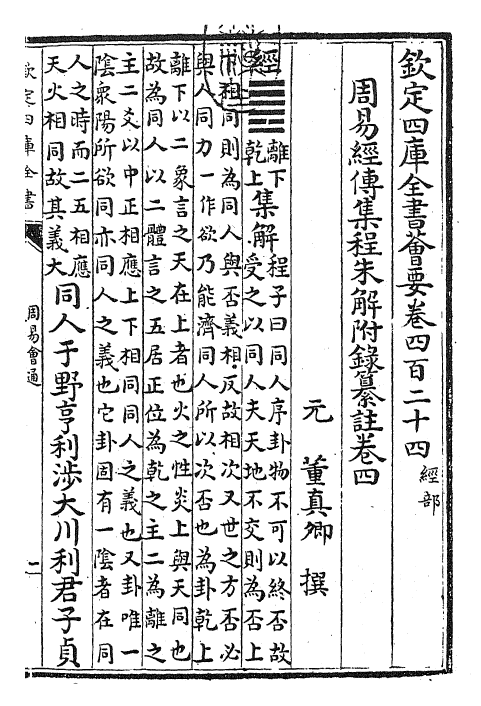 欽定四庫全書薈要卷四百二十四 經部
周易經傳集程朱解附錄纂註卷四
元 董真卿 撰
經 ䷌ 離下
乾上 集解 程子曰同人序卦物不可以終否故
受之以同人夫天地不交則為否上
下相同則為同人與否義相反故相次又世之方否必
與人同力一作欲乃能濟同人所以次否也為卦乾上
離下以二象言之天在上者也火之性炎上與天同也
故為同人以二體言之五居正位為乾之主二為離之
主二爻以中正相應上下相同同人之義也又卦唯一
陰衆陽所欲同亦同人之義也它卦固有一陰者在同
人之時而二五相應
天火相同故其義大 同人于野亨利涉大川利君子貞
欽定四庫全書 周易會通 二